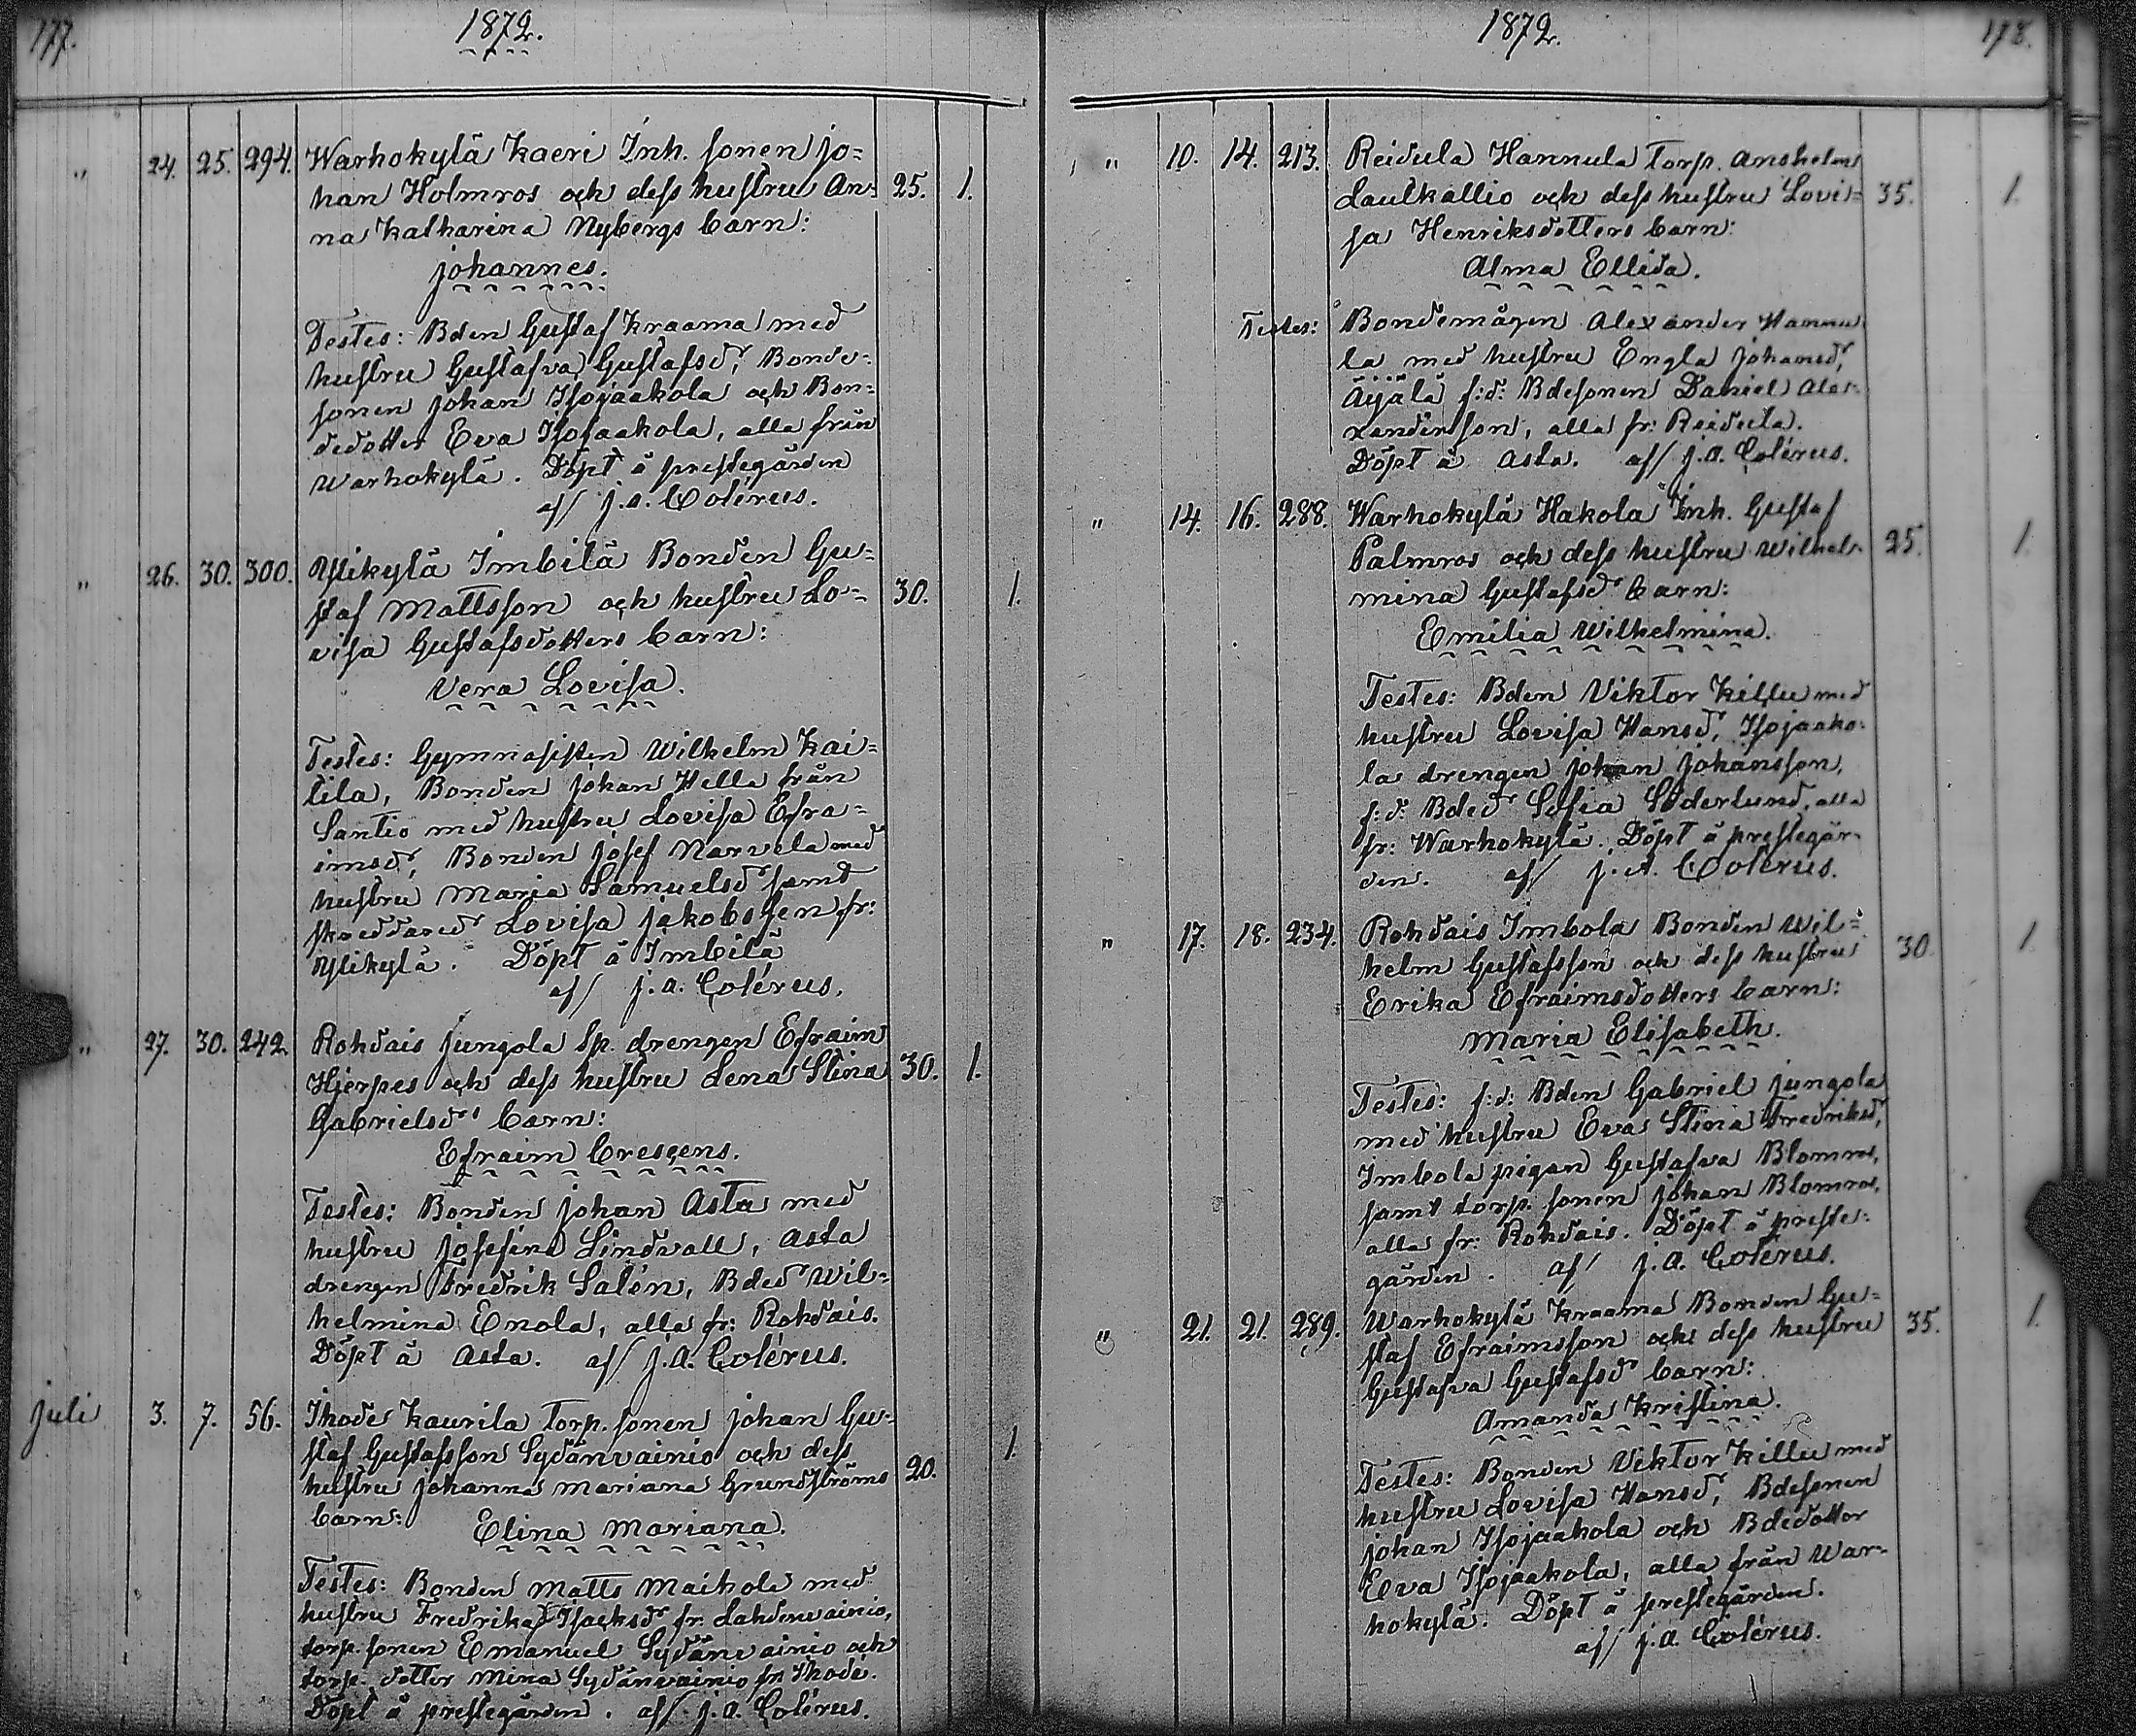 177.
1872.
" 24. 25. 294. Warhokylä Kaeri Inh. sonen Jo=
han Holmros och dess hustru An= 25. 1.
na Katharina Nybergs barn:
Johannes.
Testes: Bden Gustaf Kraama med
hustru Gustafva Gustafsd., Bonde=
sonen Johan Isojaakola och Bon=
dedotter Eva Isojaakola, alla från
Warhokylä. Döpt å prestegården
af J. A. Colérus.
" 26. 30. 300. Ylikylä Imbilä Bonden Gu=
staf Mattsson och hustru Lo= 30. 1.
visa Gustafsdotters barn:
Vera Lovisa.
Testes: Gymnasisten Wilhelm Kai=
tila, Bonden Johan Hella från
Santio med hustru Lovisa Efra=
imsd., Bonden Josef Narvela med
hustru Maria Samuelsd. samt
Lovisa Jakobsson fr:
Ylikylä. Döpt å Imbilä
af J. A. Colérus.
" 27. 30. 242. Rohdais Jungola Sp. drengen Efraim
Hjerpes och dess hustru Lena Stina 30. 1.
Gabrielsd's barn:
Efraim Crescens.
Testes: Bonden Johan Asta med
hustru Josefina Lindvall, Asta
drengen Fredrik Salén, Bded Wil=
helmina Enola, alla fr: Rohdais.
Döpt å Asta. af J. A. Colérus.
Juli 3. 7. 56. Ihode Kaurila Torp. sonen Johan Gu=
staf Gustafsson Sydänvainio och dess 1.
hustru Johanna Mariana Grundströms 20.
barn: Elina Mariana.
Testes: Bonden Matts Maihola med
hustru Fredrika Isacksd. fr. Lahdinvainio,
torp. sonen Emanuel Sydänvainio och
torp. dotter Mina Sydänvainio fr. Ihode.
Döpt å prestegården. af J. A. Colérus.
1872. 178.
" 10. 14. 213. Reidula Hannula Torp. Anshelms
Laulkallio och dess hustru Lovi= 35. 1.
sa Henriksdotters barn:
Alma Ellida.
Testes: Bondemågen Alexander Hannu
la med hustru Engla Johansd.,
Äijälä f:d: Bdesonen Daniel Alex=
andersson, alla fr: Reidula.
Döpt å Asta. af J. A. Colérus.
" 14. 16. 288. Warhokylä Hakola Inh. Gustaf
Palmros och dess hustru Wilhel= 25. 1.
mina Gustafsd. barn:
Emilia Wilhelmina.
Testes: Bden Viktor Killu med
hustru Lovisa Hansd., Isojaako=
la drengen Johan Johansson,
f:d: Bded Sofia Söderlund, alla
fr: Warhokylä. Döpt å prestegår=
den. af J. A. Colérus.
" 17. 18. 234. Rohdais Imbola Bonden Wil=
helm Gustafsson och dess hustru 30. 1.
Erika Efraimsdotters barn:
Maria Elisabeth.
Testes: f:d: Bden Gabriel Jungola
med hustru Eva Stina Fredriksd.,
Imbola pigan Gustafva Blomros,
samt torp. sonen Johan Blomros,
alla fr: Rohdais. Döpt å preste=
gården. af J. A. Colérus.
" 21. 21. 289. Warhokylä Kraama Bonden Gu=
staf Efraimsson och dess hustru 35. 1.
Gustafva Gustafsd barn:
Amanda Kristina.
Testes: Bonden Viktor Killu med
hustru Lovisa Hansd., Bdesonen
Johan Isojaakola och Bdedotter
Eva Isojaakola, alla från War=
hokylä. Döpt å prestegården.
af J. A. Colérus.